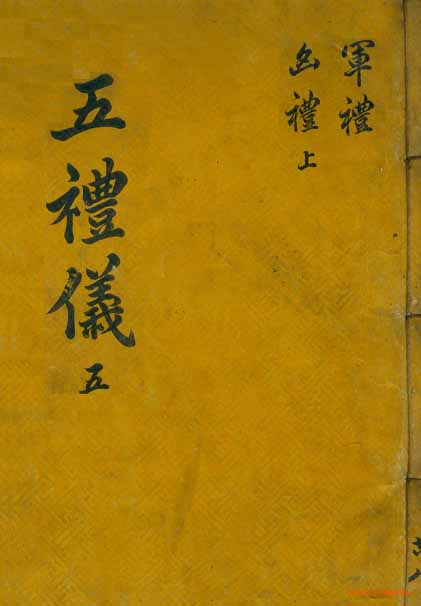 軍禮
凶禮上
五禮儀 五